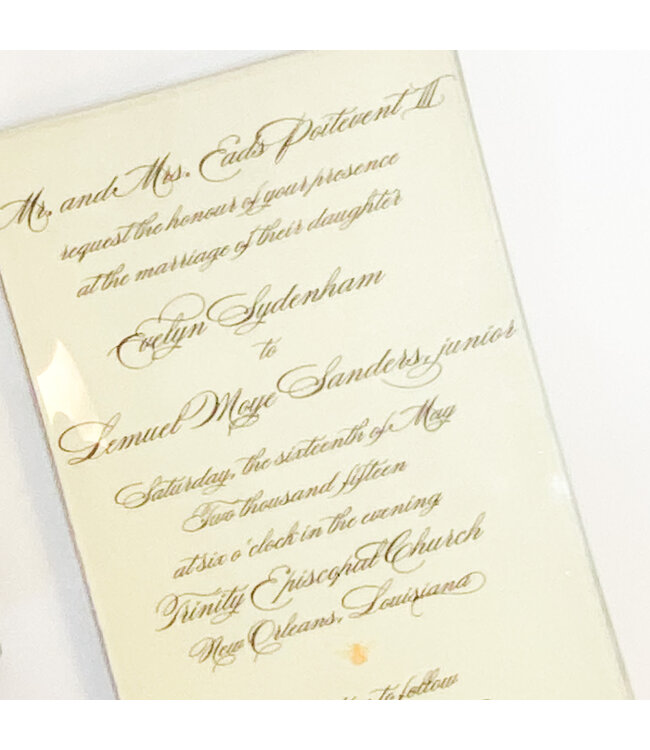 Mr. and Mrs. Eads Poitevent III
request the honour of your presence
at the marriage of their daughter
Evelyn Sydenham
to
Lemuel Moye Sanders, junior
Saturday, the sixteenth of May
Two thousand fifteen
at six o'clock in the evening
Trinity Episcopal Church
New Orleans, Louisiana
to follow